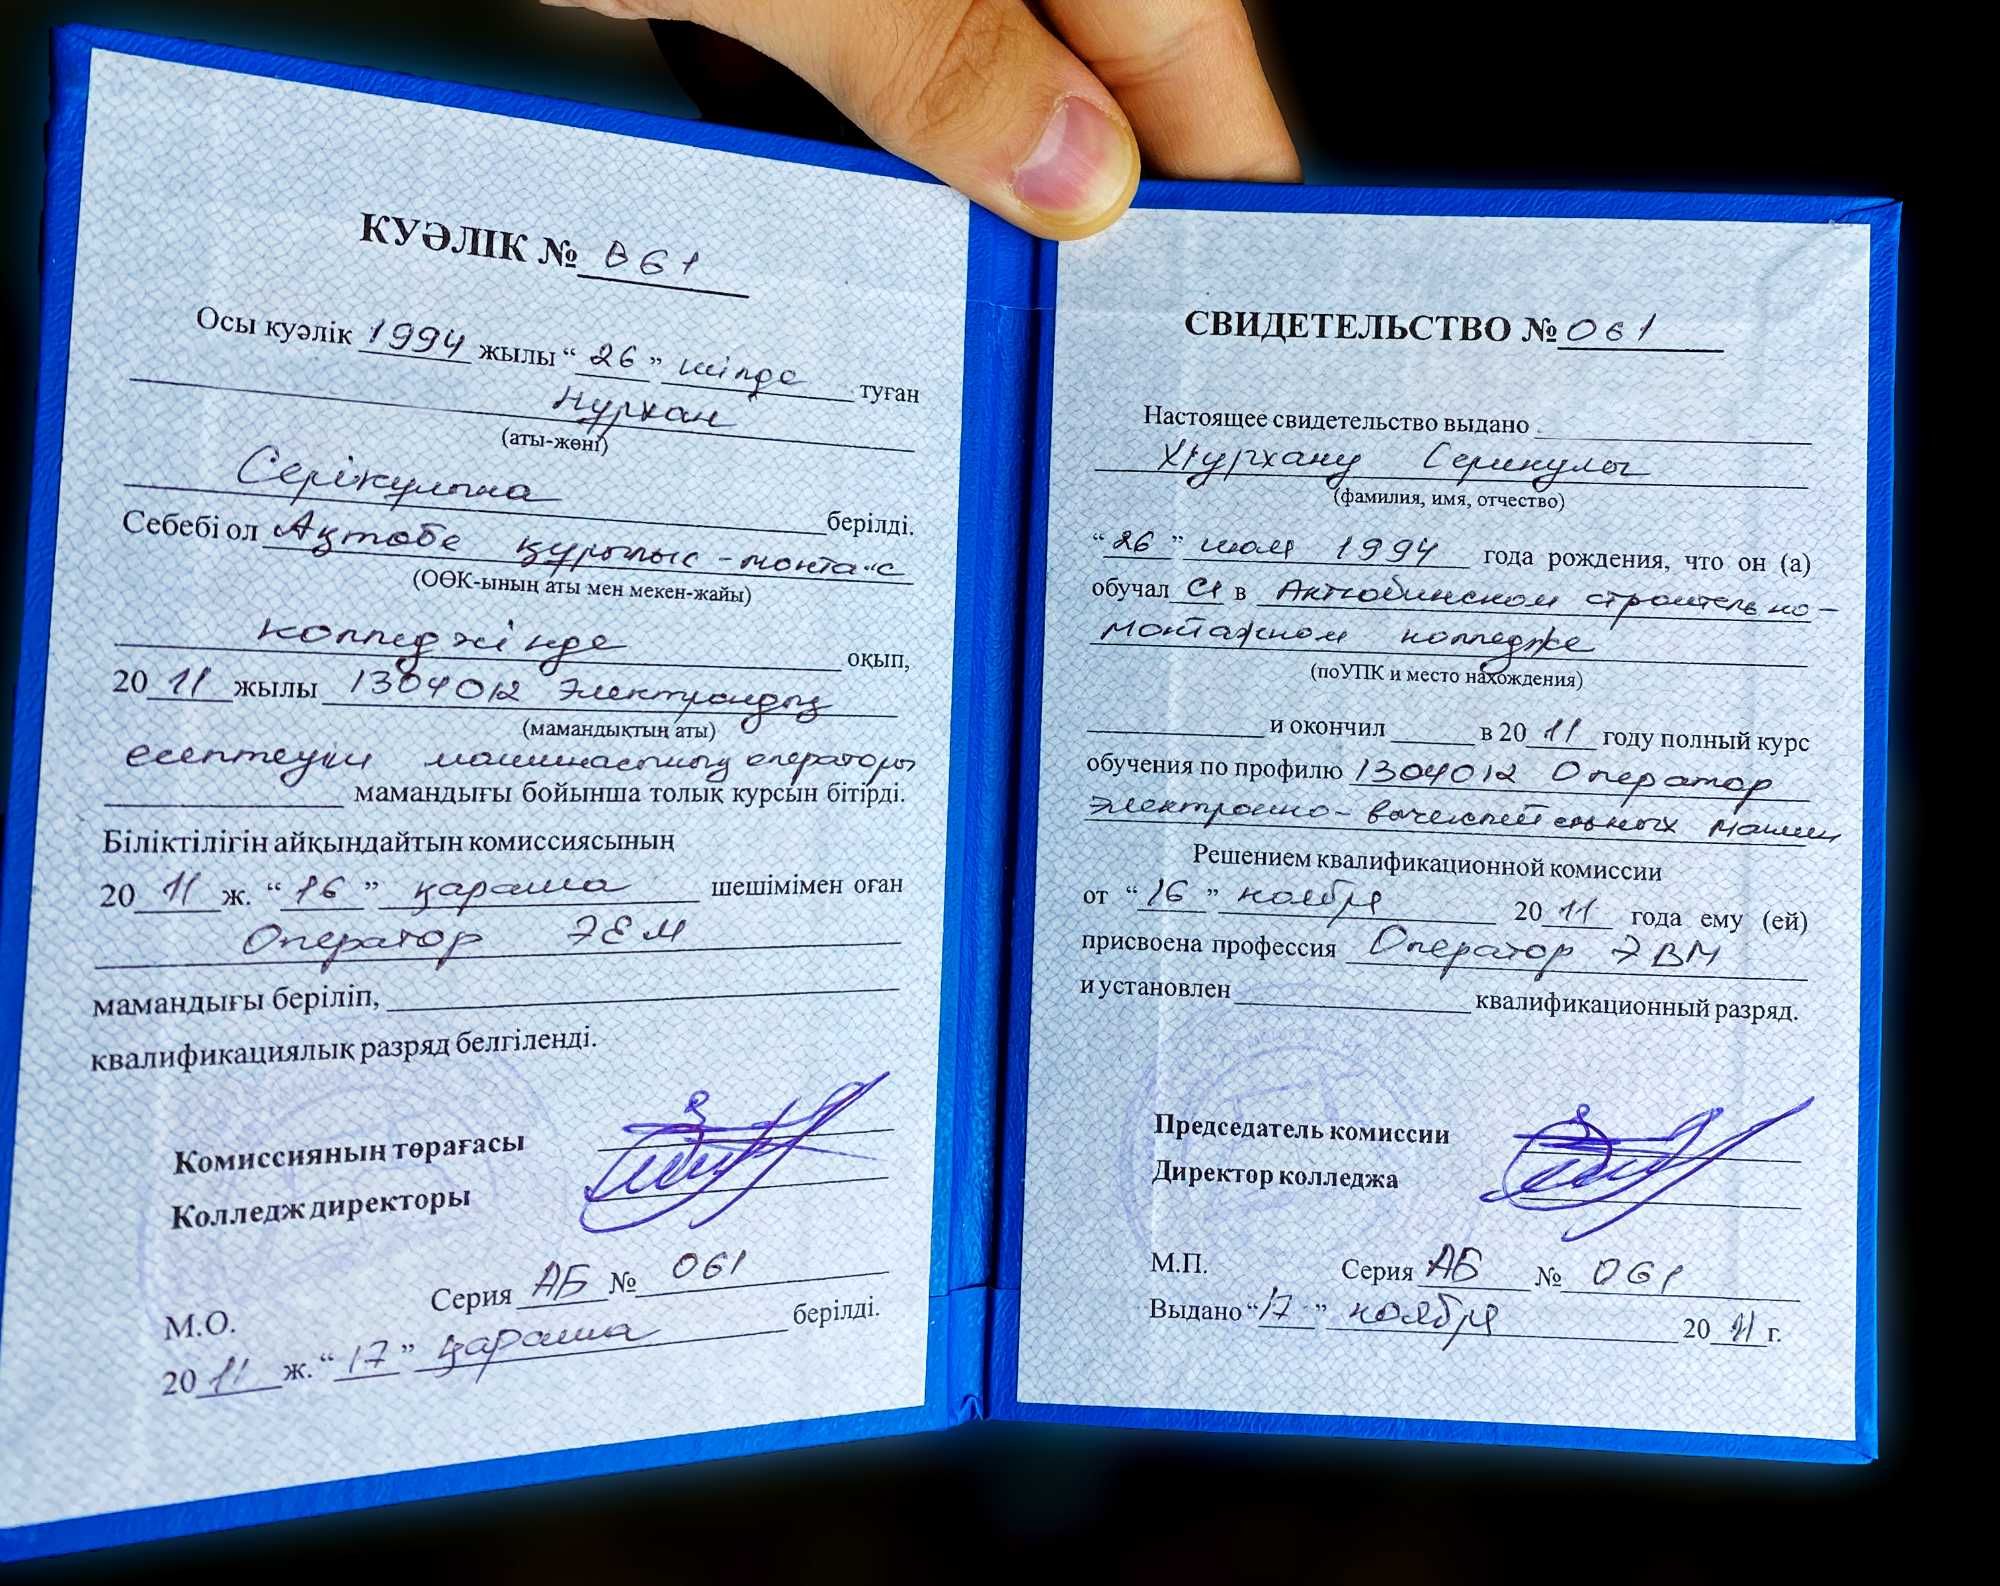 КУӘЛІК № 061
Осы куәлік 1994 жылы “ 26 ” шілде туған
Нурхан
(аты-жөні)
Серікулына берілді.
Себебі ол Ақтобе құрылыс-монтаж
(ОӨК-ының аты мен мекен-жайы)
колледжінде оқып,
20 11 жылы 1304012 Электрондық
(мамандықтың аты)
есептеуіш машинасының операторы
мамандығы бойынша толық курсын бітірді.
Біліктілігін айқындайтын комиссиясының
20 11 ж. “ 16 ” қараша шешімімен оған
Оператор ЭЕМ
мамандығы беріліп,
квалификациялық разряд белгіленді.
Комиссияның төрағасы
Колледж директоры
Серия АБ № 061
М.О.
20 11 ж. “ 17 ” қараша берілді.
СВИДЕТЕЛЬСТВО № 061
Настоящее свидетельство выдано
Нурхану Серикулы
(фамилия, имя, отчество)
“ 26 ” июля 1994 года рождения, что он (а)
обучал ся в Актюбинском строительно-
монтажном колледже
(поУПК и место нахождения)
и окончил в 20 11 году полный курс
обучения по профилю 1304012 Оператор
электронно-вычеслительных машин
Решением квалификационной комиссии
от “ 16 ” ноября 20 11 года ему (ей)
присвоена профессия Оператор ЭВМ
и установлен квалификационный разряд.
Председатель комиссии
Директор колледжа
М.П. Серия АБ № 061
Выдано “ 17 ” ноября 20 11 г.